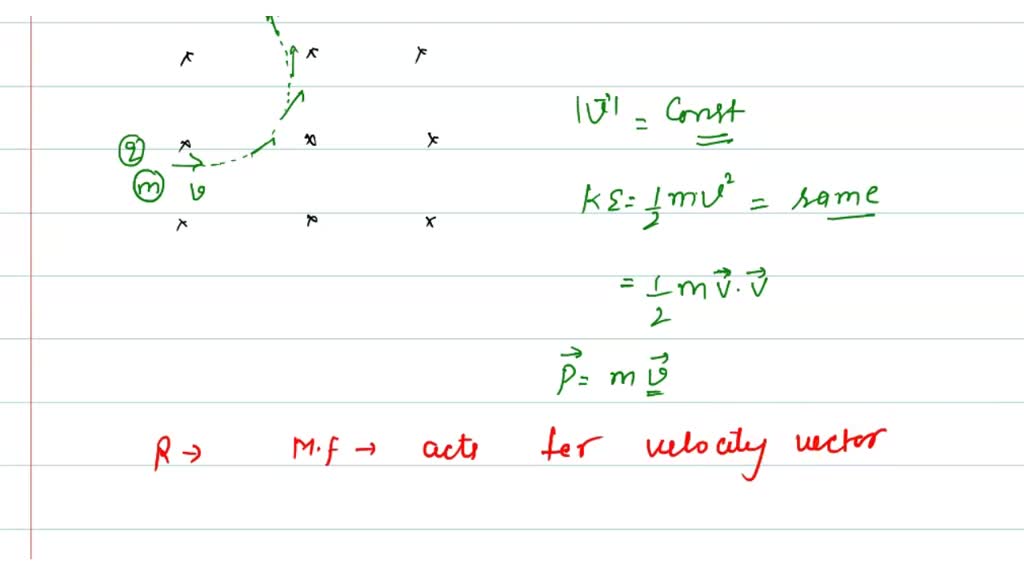 x x x
q x x x
m v
x x x
|v⃗| = Const
KE = 1/2 mv² = same
= 1/2 m v⃗ . v⃗
P⃗ = m v⃗
R → M.f → acts for velocity vector